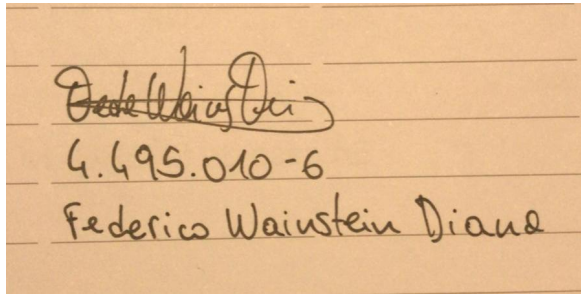 4.495.010-6
Federico Wainstein Diana